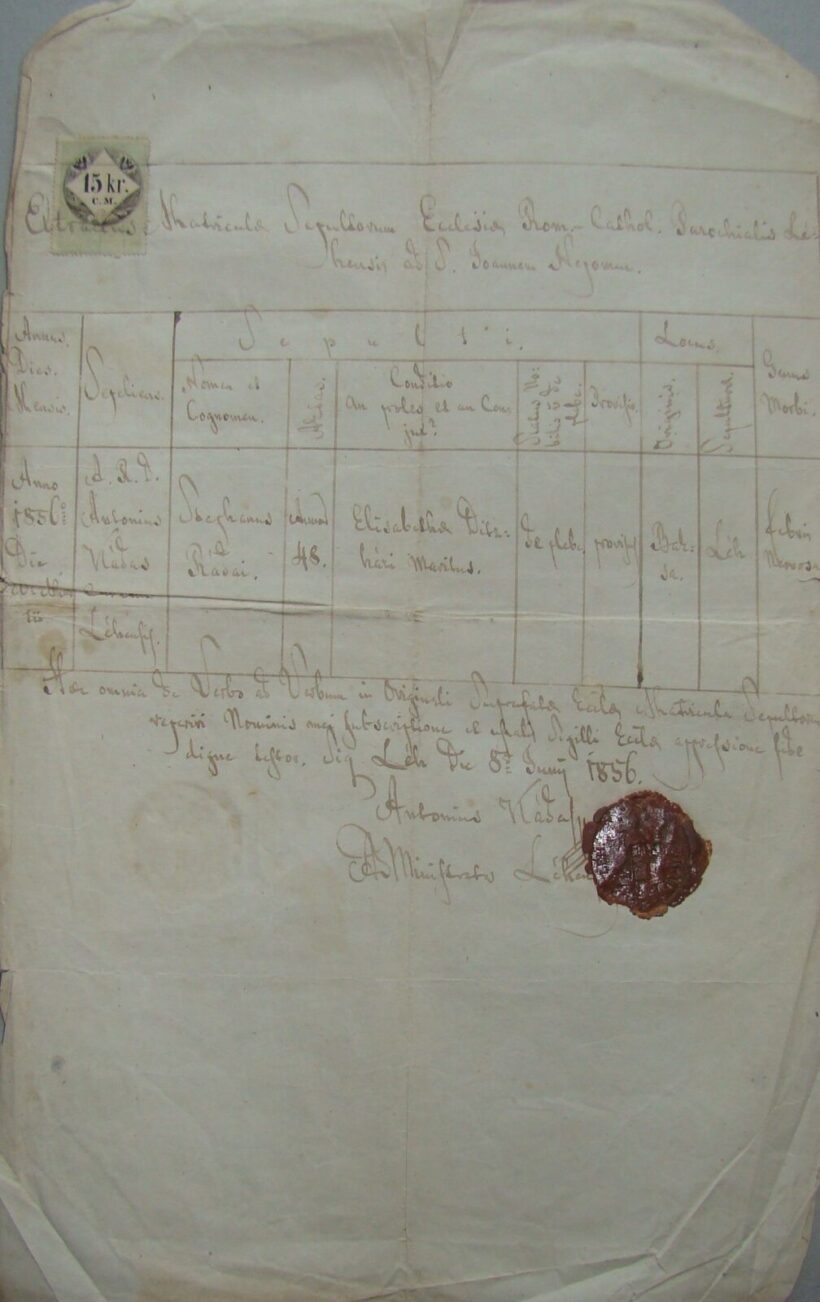 15 kr.
C. M.
Extractus Matriculae Sepultorum Ecclesiae Rom. Cathol. Parochialis Lé-
hensis ad S. Joannem Nepomu.
Annus.
Dies.
Mensis.
Sepeliens.
Sepulti.
Nomen et
Cognomen.
Aetas.
Conditio
An proles et an Con-
jux?
Status No-
bilis v. de
plebe.
Provisus.
Locus.
Originis.
Sepulturae.
Genus
Morbi.
Anno
1856
Die
A. R. D.
Antonius
Nádas
Léhensis.
Stephanus
Rádai.
Annor
48.
Elisabetha
hári Maritus.
de plebe
provisus
Bak-
sa.
Léh
febris
Nervosa
Haec omnia de Verbo ad Verbum in Originali Suprafatae Ecclae Matricula Sepultorum
reperiri Nominis mei subscriptione et Sigilli Ecclae appressione fide
digne testor. Sig. Léh Die 8ª Junij 1856.
Antonius Nádasy
Administrator